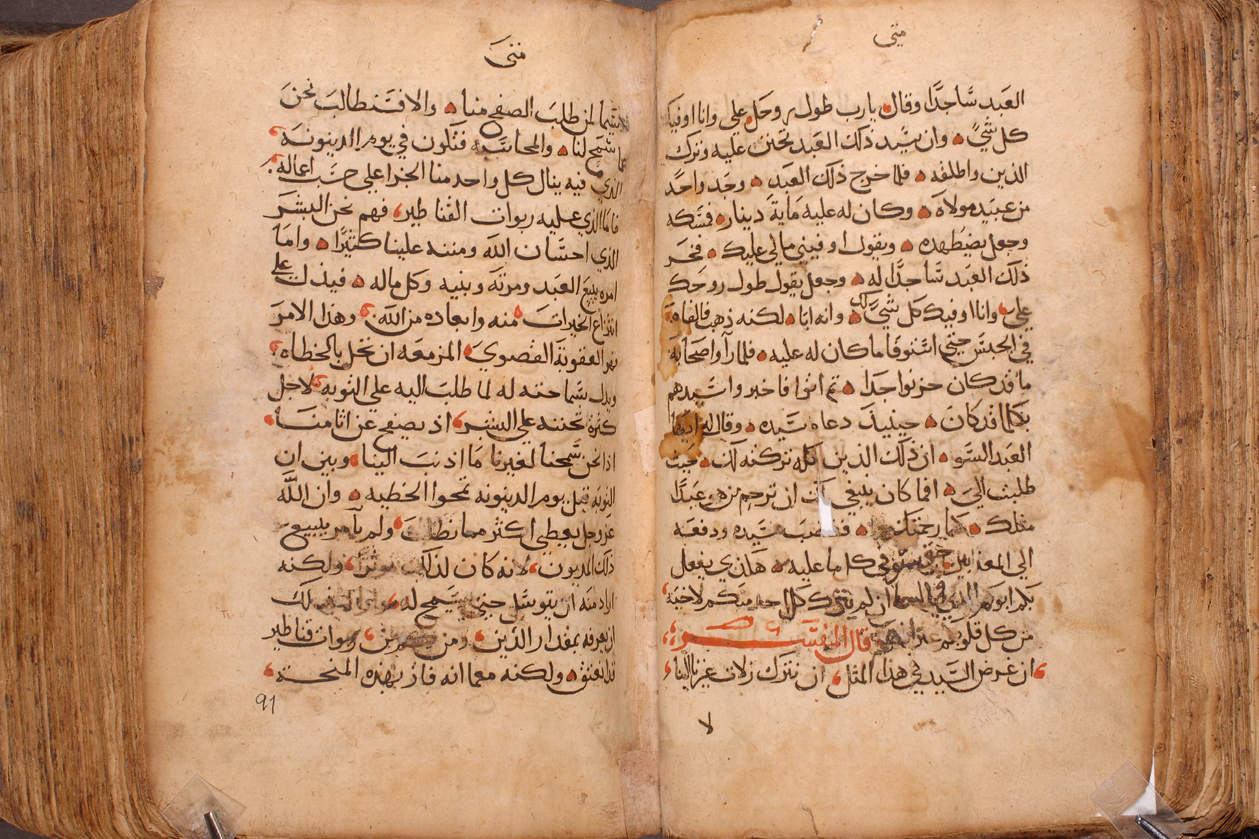 متى
العبد ساجدًا وقال يارب طول روحك علي وانا اوفيك
كل شيً وان سيد ذلك العبد تحنن عليه وترك
الدين واطلقه فلما خرج ذلك العبد وجد واحدًا
من عبيد مولاه وكان له عليه ماية دينار فمسكه
وجعل يضطهده ويقول اوفيني مالي عليك فخر
ذلك العبد ساجدًا له وجعل يقول طول روحك
علي وانا اوفيك كل شيً لك وانه ابا لكنه ذهب فالقاه
في الحبس حتي استوفا ما كان له عليه فلما راوا اصحابه
ما قد كان حزنوا جدا ثم اتوا فاخبروا سيدهم
بكلما قد كان حينيذ دعاه سيده وقال له ايها
العبد السو ان ذلك الدين كله تركته لك حيث
طلبت الي افما كان ينبغي لك ان ترحم من هو عبدًا
مثلك كما رحمتك فغضب سيده ودفعه
الي المعذبين حتي يستوفي كل ما عليه هكذي يفعل
بكم ابوكم الذي في السما ان لم تترك كل احد منكم لاخيه
من كل قلوبكم
قال المفسر
ان غرض السيد في هذا المثل ان نترك زلات غيرنا الينا
لا
متى
لاسيما لمن طلب الصفح منا والا فتطالب نحن
بما سمح لنا والمحاسبة فتكون في يوم الدينونة
الذي فيه ينال كل واحد منا الجزا علي حسب اعماله
فاما الذي عليه ربوات القناطير فهم نحن البشر
الذي احسان الله ومننه علينا كثيرًا واما
امره ببيع العبد ومرته وبنيه وكل ماله فيدل علي
انتزاع الخيرات منه وابعاده من الله وهذا الامر
نهر العقوبة القصوي المزمعه ان تحل بالخطاه
ويدل سماحته له لما طلب اليه علي التوبه لاجل
كثرة تحننه علي البشر اذ يصفح عن اثامنا
اذا نحن سمحنا لغيرنا ما اذنب الينا وبين ان
التوبه قبل يوم الدينونه تمحوا الخطيه وان الله
عز وجل يعطي اكثر مما نطلب ولم يامر ببيع
ذلك المديون لانه كان لذلك موثرًا ولكنه
اراد منه ان يتوسل حتي يسمح له
ان يعرفه بمقدار الدين ومن ربوات قناطير
ولكنه معما انه فاز بهذه المنحة
91